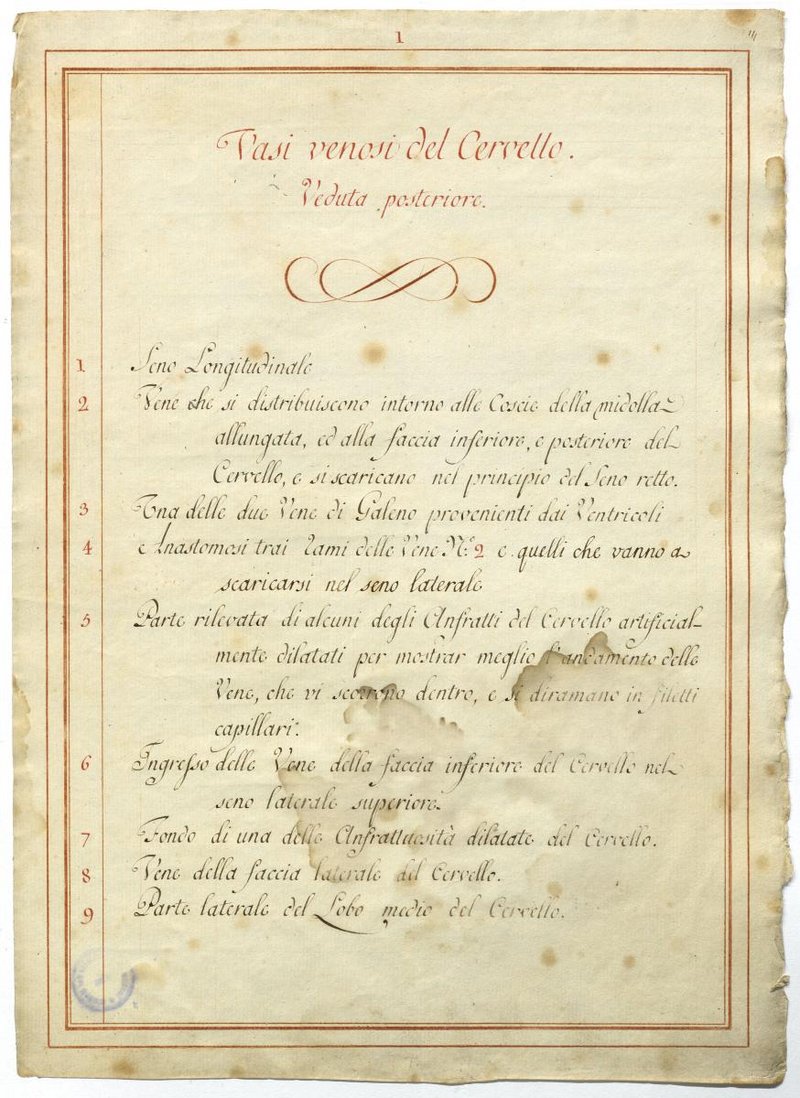 1
Vasi venosi del Cervello.
Veduta posteriore.
1 Seno Longitudinale
2 Vene che si distribuiscono intorno alle Coscie della midolla
allungata, ed alla faccia inferiore, e posteriore del
Cervello, e si scaricano nel principio del Seno retto.
3 Una delle due Vene di Galeno provenienti dai Ventricoli
4 e Anastomosi trai Rami delle Vene N.º 2 e quelli che vanno a
scaricarsi nel seno laterale
5 Parte rilevata di alcuni degli Anfratti del Cervello artificial-
mente dilatati per mostrar meglio l'andamento delle
Vene, che vi scorrono dentro, e si diramano in filetti
capillari.
6 Ingresso delle Vene della faccia inferiore del Cervello nel
seno laterale superiore.
7 Fondo di una delle Anfrattuosità dilatate del Cervello.
8 Vene della faccia laterale del Cervello.
9 Parte laterale del Lobo medio del Cervello.